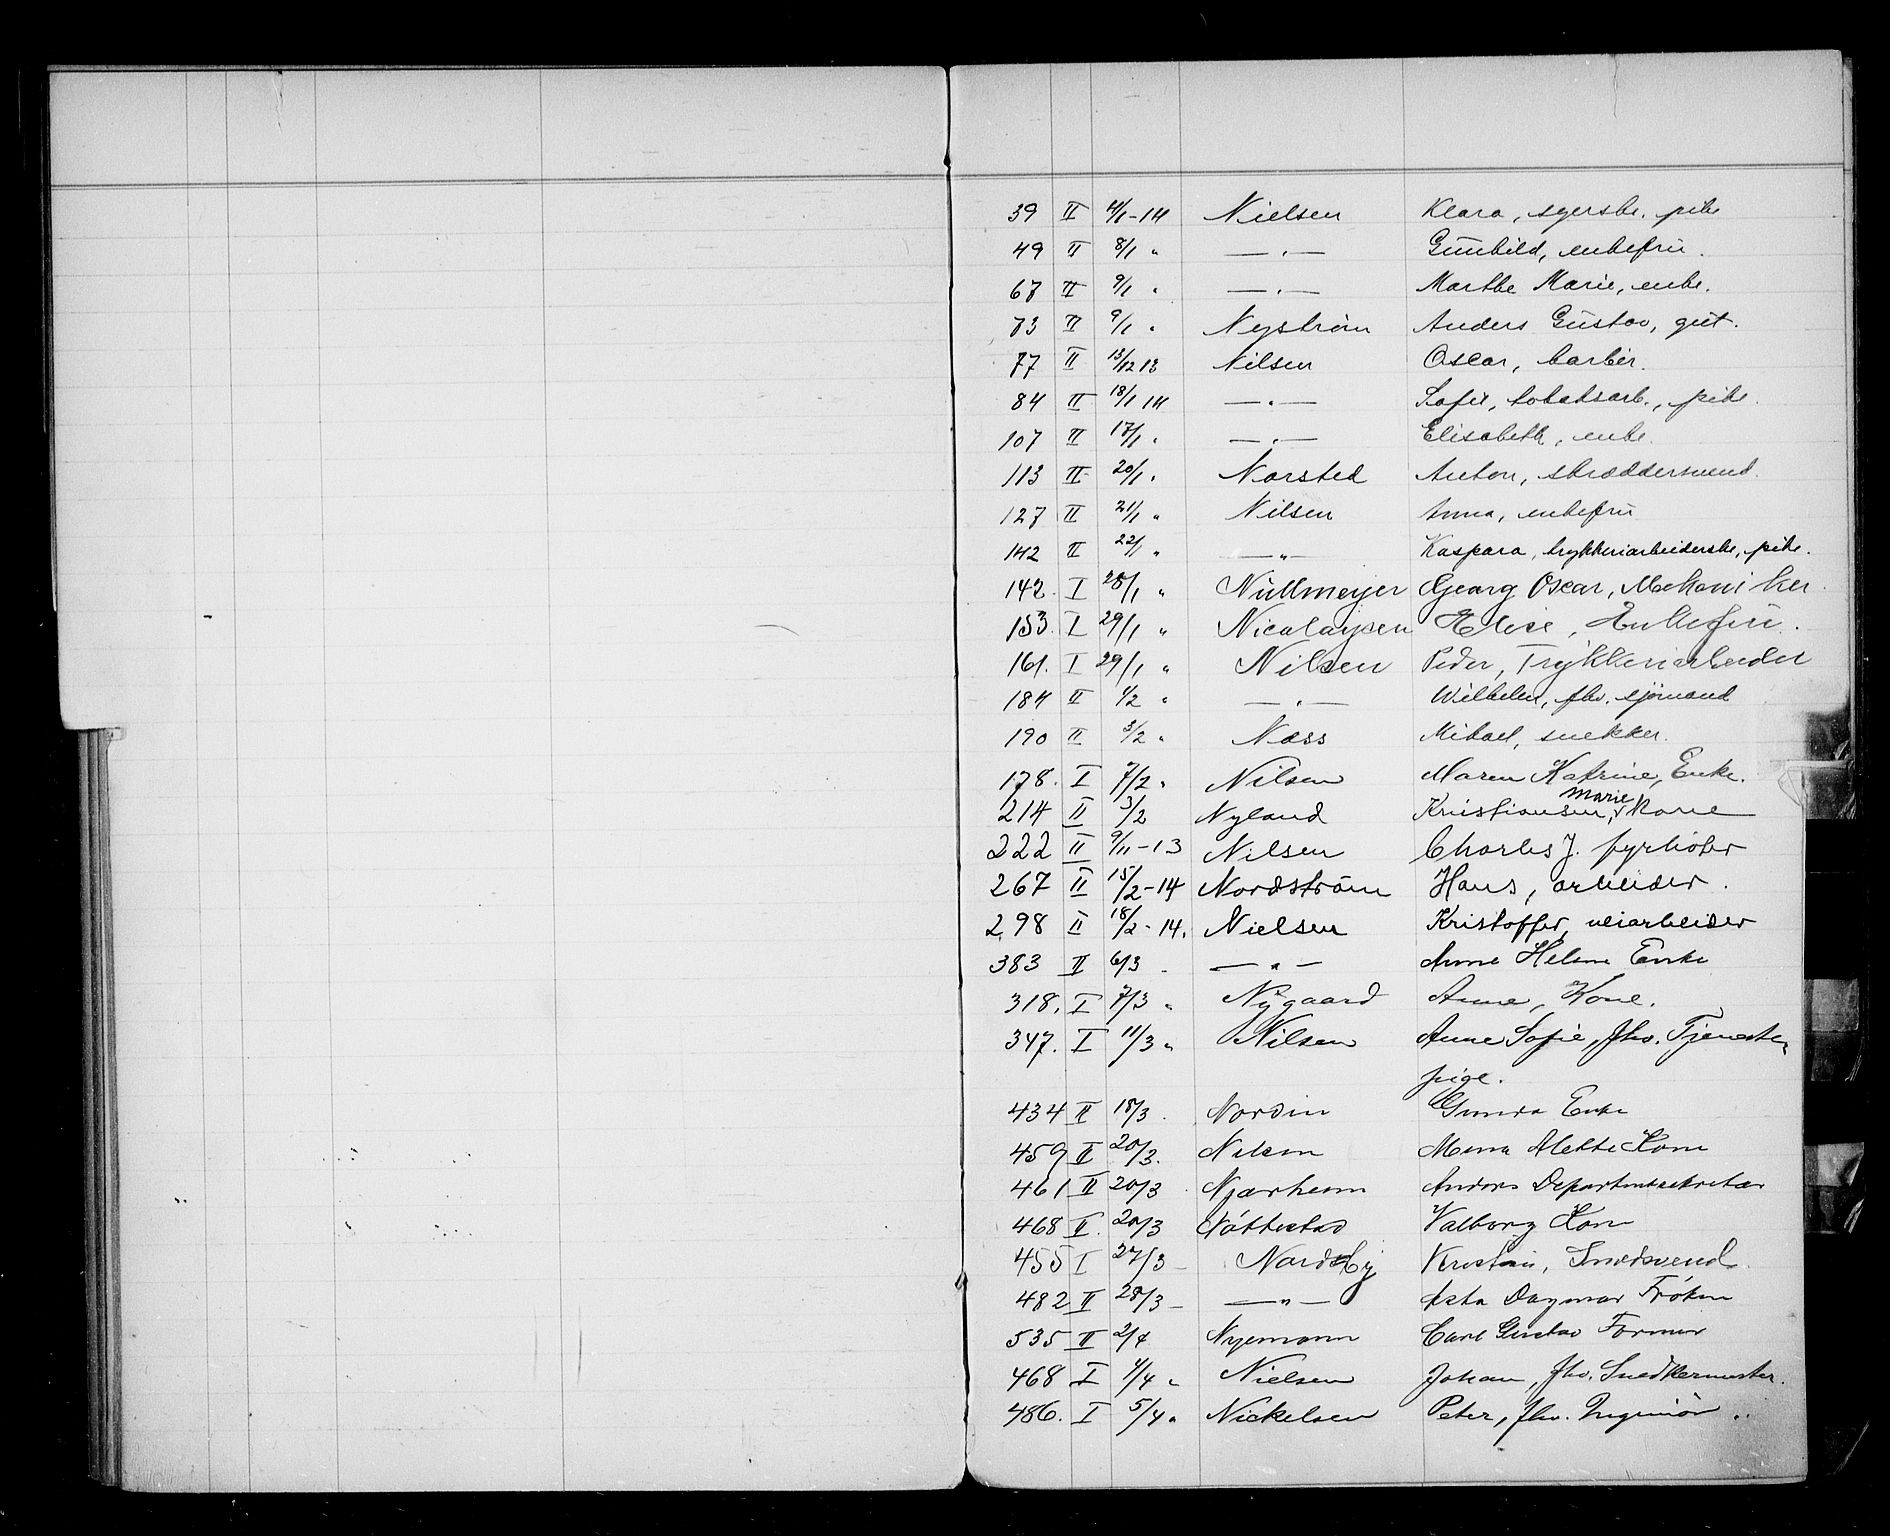 39 II 4/1-14 Nielsen Klara, syerske, pike
49 II 8/1 " —"— Gunhild, enkefru.
67 II 9/1 " —"— Marthe Marie, enke.
73 II 9/1 " Nyström Anders Gustav, gut.
77 II 13/12 13 Nilsen Oscar, barber.
84 II 18/1 14 —"— Sofie, tobaksarb., pike.
107 II 17/1 " —"— Elisabeth, enke.
113 II 20/1 " Norsted Anton, skræddersvend.
127 II 21/1 " Nilsen Anna, enkefru
142 II 22/1 " —"— Kaspara, trykkeriarbeiderske, pike.
142. I 28/1 " Nüllmeyer Georg Oscar, Mekaniker.
153. I 29/1 " Nicolaysen Elise, Enkefru.
161. I 29/1 " Nilsen Peder, Trykkeriarbeider
184 II 1/2 " —"— Wilhelm, fhv. sjømand
190 II 3/2 " Næss Mikael, snekker.
178. I 7/2 " Nilsen Maren Katrine, Enke.
214 II 3/2 Nyland Kristiansen, Marie kone
222 II 9/11-13 Nilsen Charles J. fyrbøter
267 II 15/2-14 Nordstrøm Hans, arbeider.
298 II 18/2-14. Nielsen Kristoffer, veiarbeider
383 II 6/3 —"— Anne Helene Enke
318. I 7/3 " Nygaard Anne, Kone.
347. I 11/3 " Nilsen Anne Sofie, fhv. Tjeneste-
pige.
434 II 18/3. Nordin Gunda Enke
459 II 20/3. Nilsen Mina Alette Kone
461 II 20/3 Njærheim Anders Departmtsekretær
468 II. 20/3 Nøttestad Valborg Kone
455 I 27/3 - Nordby Kristian, Smedsvend.
482 II 28/3 - —"— Asta Dagmar Frøken
535 II 2/4 Nyemann Carl Gustav Former
468 I 4/4 " Nielsen Johan, fhv. Snedkermester.
486. I 5/4 " Nickelsen Peter, fhv. Ingeniør.